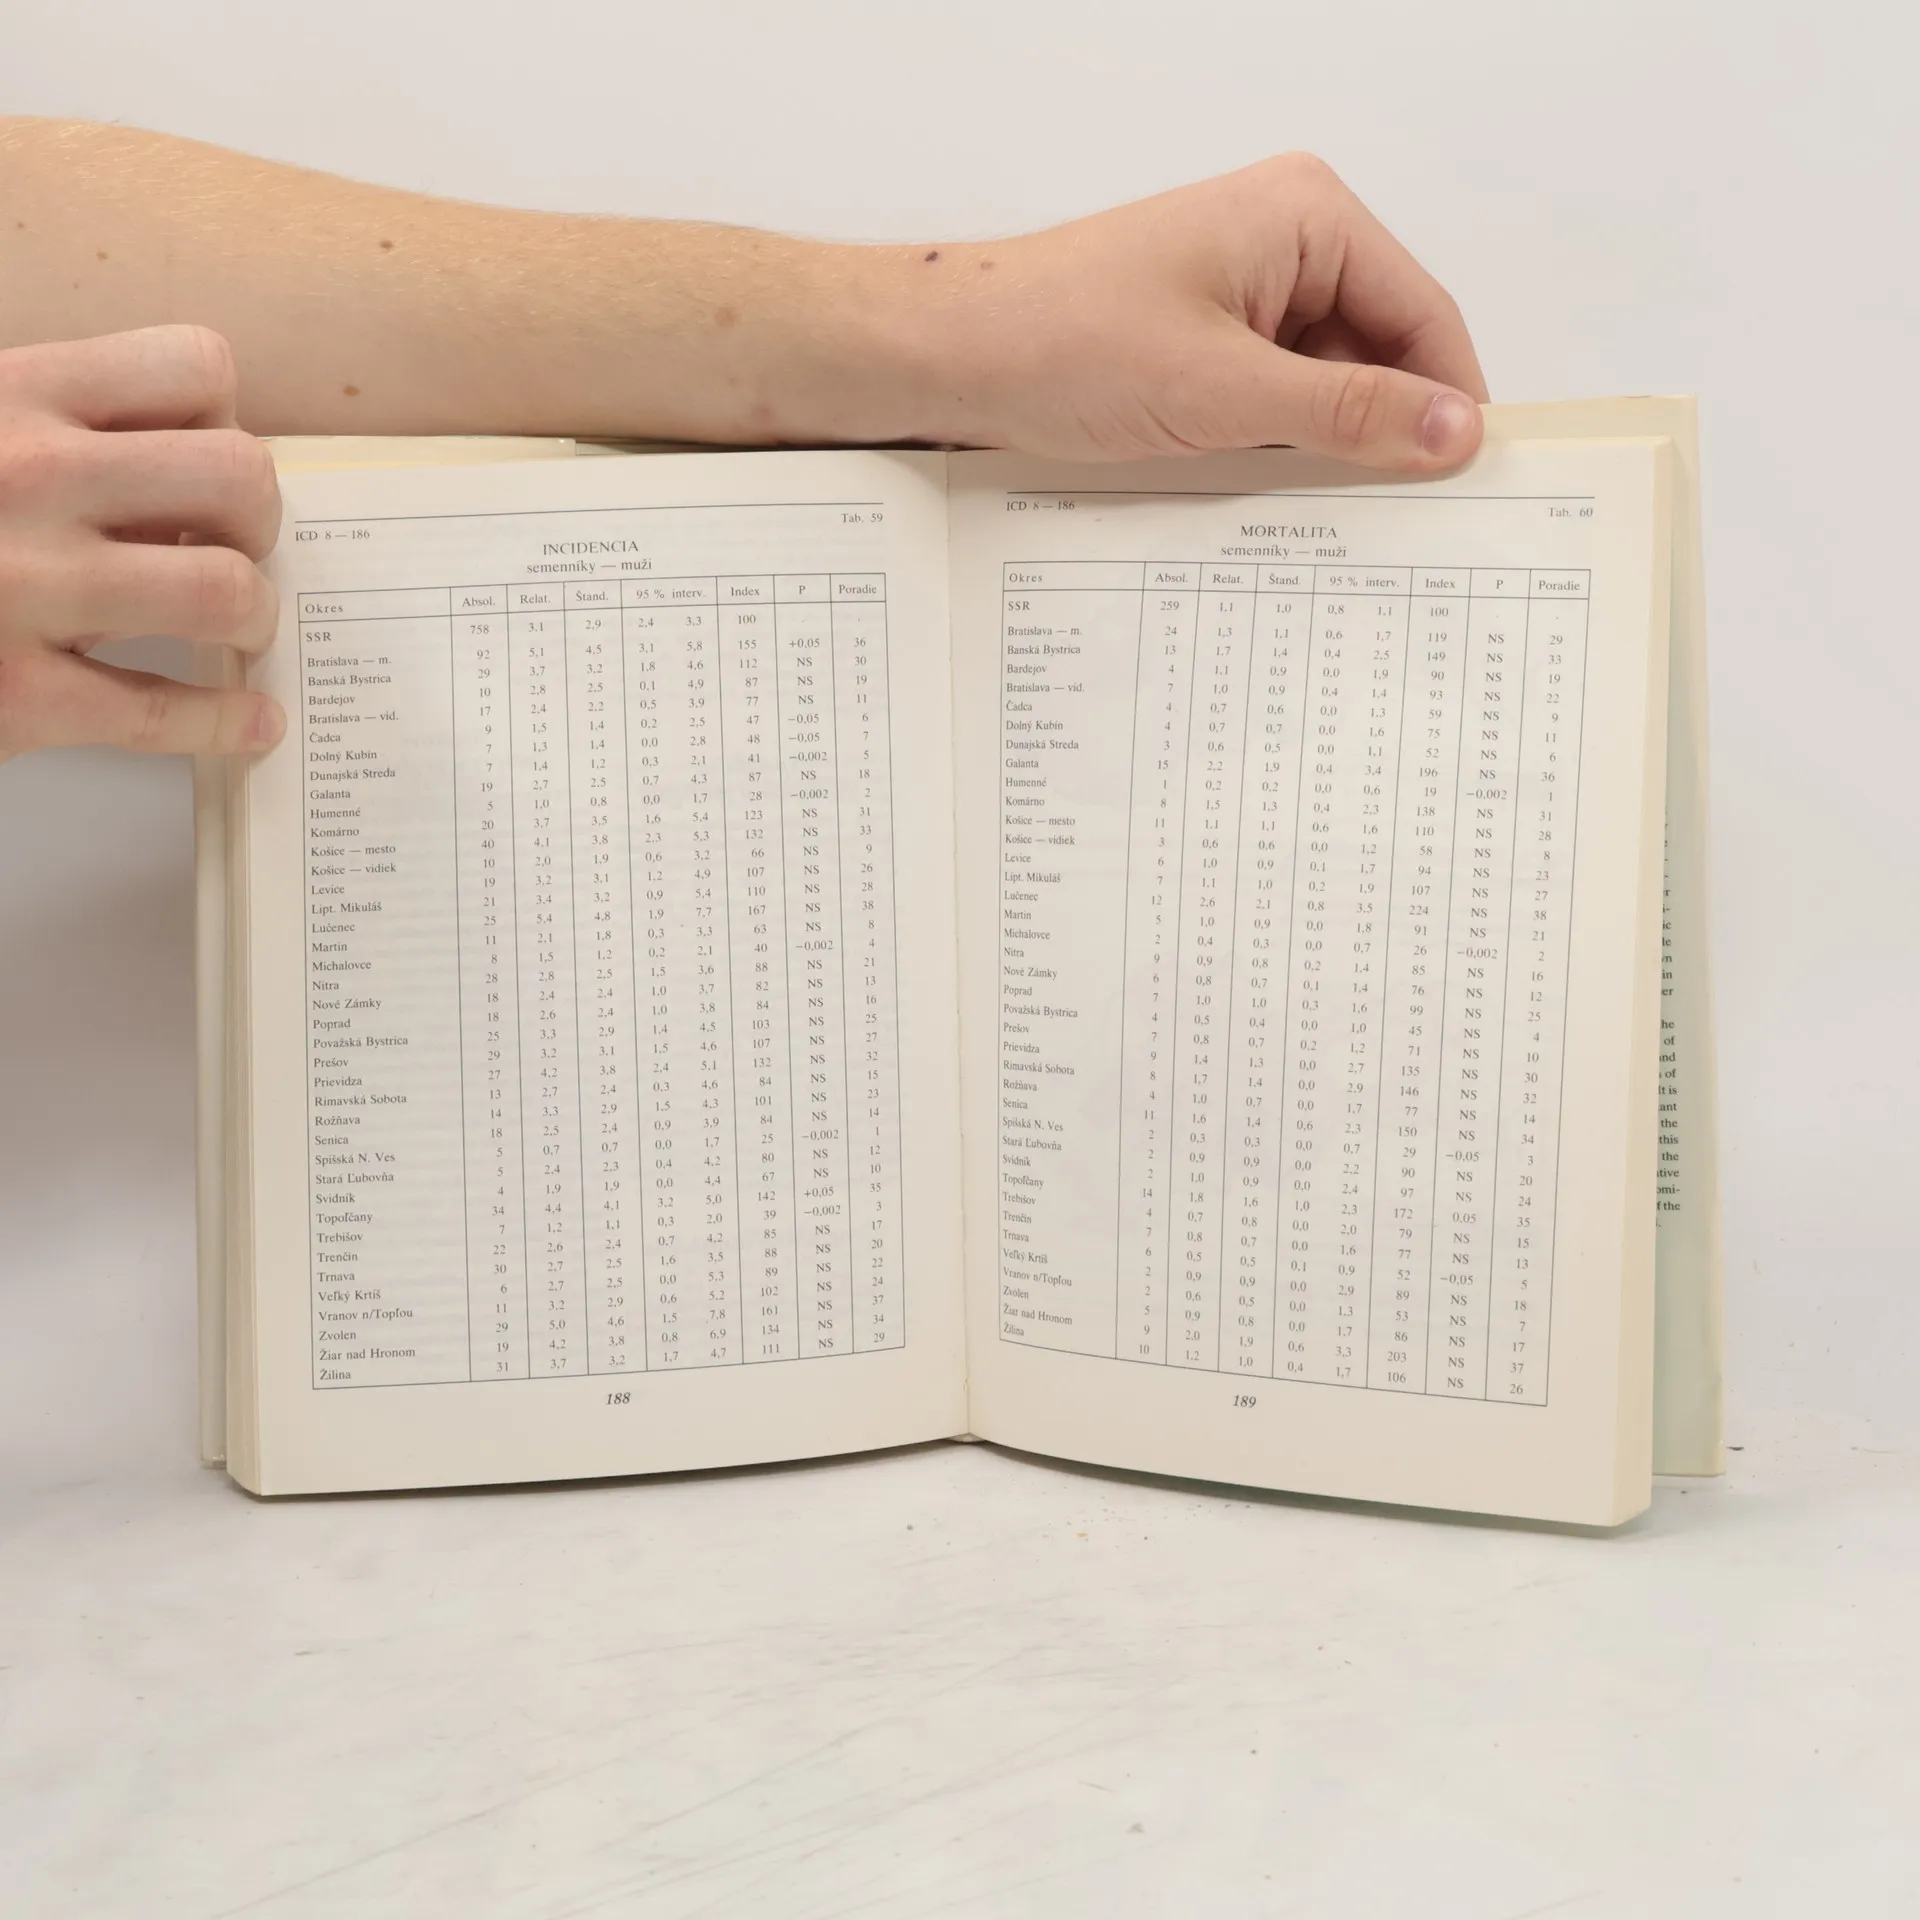 ICD 8 — 186 Tab. 59
INCIDENCIA
semenníky — muži
Okres Absol. Relat. Štand. 95 % interv. Index P Poradie
SSR 758 3,1 2,9 2,4 3,3 100 . .
Bratislava — m. 92 5,1 4,5 3,1 5,8 155 +0,05 36
Banská Bystrica 29 3,7 3,2 1,8 4,6 112 NS 30
Bardejov 10 2,8 2,5 0,1 4,9 87 NS 19
Bratislava — vid. 17 2,4 2,2 0,5 3,9 77 NS 11
Čadca 9 1,5 1,4 0,2 2,5 47 −0,05 6
Dolný Kubín 7 1,3 1,4 0,0 2,8 48 −0,05 7
Dunajská Streda 7 1,4 1,2 0,3 2,1 41 −0,002 5
Galanta 19 2,7 2,5 0,7 4,3 87 NS 18
Humenné 5 1,0 0,8 0,0 1,7 28 −0,002 2
Komárno 20 3,7 3,5 1,6 5,4 123 NS 31
Košice — mesto 40 4,1 3,8 2,3 5,3 132 NS 33
Košice — vidiek 10 2,0 1,9 0,6 3,2 66 NS 9
Levice 19 3,2 3,1 1,2 4,9 107 NS 26
Lipt. Mikuláš 21 3,4 3,2 0,9 5,4 110 NS 28
Lučenec 25 5,4 4,8 1,9 7,7 167 NS 38
Martin 11 2,1 1,8 0,3 3,3 63 NS 8
Michalovce 8 1,5 1,2 0,2 2,1 40 −0,002 4
Nitra 28 2,8 2,5 1,5 3,6 88 NS 21
Nové Zámky 18 2,4 2,4 1,0 3,7 82 NS 13
Poprad 18 2,6 2,4 1,0 3,8 84 NS 16
Považská Bystrica 25 3,3 2,9 1,4 4,5 103 NS 25
Prešov 29 3,2 3,1 1,5 4,6 107 NS 27
Prievidza 27 4,2 3,8 2,4 5,1 132 NS 32
Rimavská Sobota 13 2,7 2,4 0,3 4,6 84 NS 15
Rožňava 14 3,3 2,9 1,5 4,3 101 NS 23
Senica 18 2,5 2,4 0,9 3,9 84 NS 14
Spišská N. Ves 5 0,7 0,7 0,0 1,7 25 −0,002 1
Stará Ľubovňa 5 2,4 2,3 0,4 4,2 80 NS 12
Svidník 4 1,9 1,9 0,0 4,4 67 NS 10
Topoľčany 34 4,4 4,1 3,2 5,0 142 +0,05 35
Trebišov 7 1,2 1,1 0,3 2,0 39 −0,002 3
Trenčín 22 2,6 2,4 0,7 4,2 85 NS 17
Trnava 30 2,7 2,5 1,6 3,5 88 NS 20
Veľký Krtíš 6 2,7 2,5 0,0 5,3 89 NS 22
Vranov n/Topľou 11 3,2 2,9 0,6 5,2 102 NS 24
Zvolen 29 5,0 4,6 1,5 7,8 161 NS 37
Žiar nad Hronom 19 4,2 3,8 0,8 6,9 134 NS 34
Žilina 31 3,7 3,2 1,7 4,7 111 NS 29
188
ICD 8 — 186 Tab. 60
MORTALITA
semenníky — muži
Okres Absol. Relat. Štand. 95 % interv. Index P Poradie
SSR 259 1,1 1,0 0,8 1,1 100 . .
Bratislava — m. 24 1,3 1,1 0,6 1,7 119 NS 29
Banská Bystrica 13 1,7 1,4 0,4 2,5 149 NS 33
Bardejov 4 1,1 0,9 0,0 1,9 90 NS 19
Bratislava — vid. 7 1,0 0,9 0,4 1,4 93 NS 22
Čadca 4 0,7 0,6 0,0 1,3 59 NS 9
Dolný Kubín 4 0,7 0,7 0,0 1,6 75 NS 11
Dunajská Streda 3 0,6 0,5 0,0 1,1 52 NS 6
Galanta 15 2,2 1,9 0,4 3,4 196 NS 36
Humenné 1 0,2 0,2 0,0 0,6 19 −0,002 1
Komárno 8 1,5 1,3 0,4 2,3 138 NS 31
Košice — mesto 11 1,1 1,1 0,6 1,6 110 NS 28
Košice — vidiek 3 0,6 0,6 0,0 1,2 58 NS 8
Levice 6 1,0 0,9 0,1 1,7 94 NS 23
Lipt. Mikuláš 7 1,1 1,0 0,2 1,9 107 NS 27
Lučenec 12 2,6 2,1 0,8 3,5 224 NS 38
Martin 5 1,0 0,9 0,0 1,8 91 NS 21
Michalovce 2 0,4 0,3 0,0 0,7 26 −0,002 2
Nitra 9 0,9 0,8 0,2 1,4 85 NS 16
Nové Zámky 6 0,8 0,7 0,1 1,4 76 NS 12
Poprad 7 1,0 1,0 0,3 1,6 99 NS 25
Považská Bystrica 4 0,5 0,4 0,0 1,0 45 NS 4
Prešov 7 0,8 0,7 0,2 1,2 71 NS 10
Prievidza 9 1,4 1,3 0,0 2,7 135 NS 30
Rimavská Sobota 8 1,7 1,4 0,0 2,9 146 NS 32
Rožňava 4 1,0 0,7 0,0 1,7 77 NS 14
Senica 11 1,6 1,4 0,6 2,3 150 NS 34
Spišská N. Ves 2 0,3 0,3 0,0 0,7 29 −0,05 3
Stará Ľubovňa 2 0,9 0,9 0,0 2,2 90 NS 20
Svidník 2 1,0 0,9 0,0 2,4 97 NS 24
Topoľčany 14 1,8 1,6 1,0 2,3 172 0,05 35
Trebišov 4 0,7 0,8 0,0 2,0 79 NS 15
Trenčín 7 0,8 0,7 0,0 1,6 77 NS 13
Trnava 6 0,5 0,5 0,1 0,9 52 −0,05 5
Veľký Krtíš 2 0,9 0,9 0,0 2,9 89 NS 18
Vranov n/Topľou 2 0,6 0,5 0,0 1,3 53 NS 7
Zvolen 5 0,9 0,8 0,0 1,7 86 NS 17
Žiar nad Hronom 9 2,0 1,9 0,6 3,3 203 NS 37
Žilina 10 1,2 1,0 0,4 1,7 106 NS 26
189